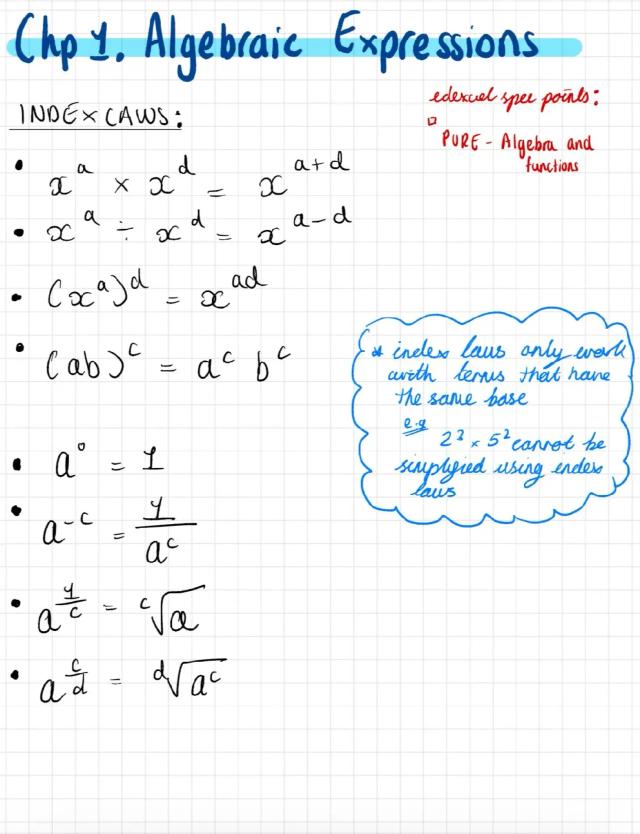 Chp 1. Algebraic Expressions
edexcel spec points:
PURE - Algebra and
functions
INDEX LAWS:
• x^a × x^d = x^(a+d)
• x^a ÷ x^d = x^(a-d)
• (x^a)^d = x^(ad)
• (ab)^c = a^c b^c
* index laws only work
with terms that have
the same base
e.g
2² × 5² cannot be
simplified using index
laws
• a⁰ = 1
• a^(-c) = 1/a^c
• a^(1/c) = ᶜ√a
• a^(c/d) = ᵈ√(a^c)